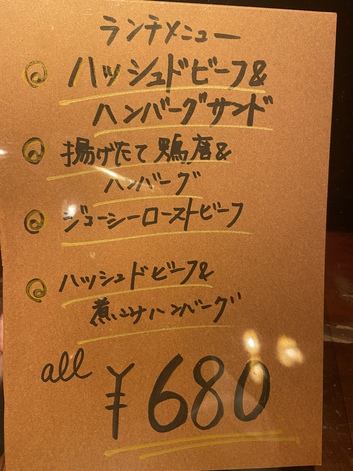 ランチメニュー
ハッシュドビーフ&
ハンバーグサンド
揚げたて鶏唐&
ハンバーグ
ジューシーローストビーフ
ハッシュドビーフ&
煮込みハンバーグ
all ¥680